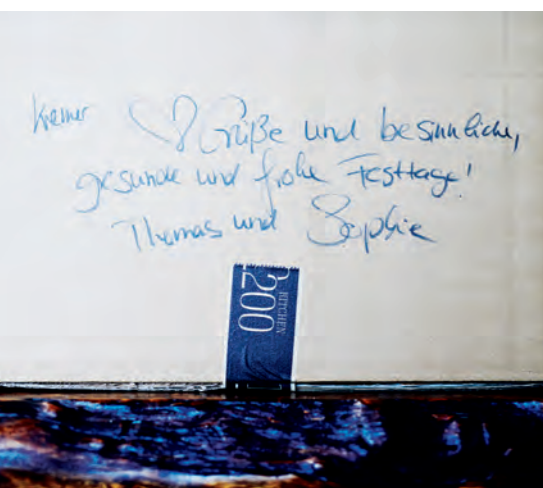 ♡ Grüße und besinnliche,
gesunde und frohe Festtage!
Thomas und Sophie
KITCHEN
200